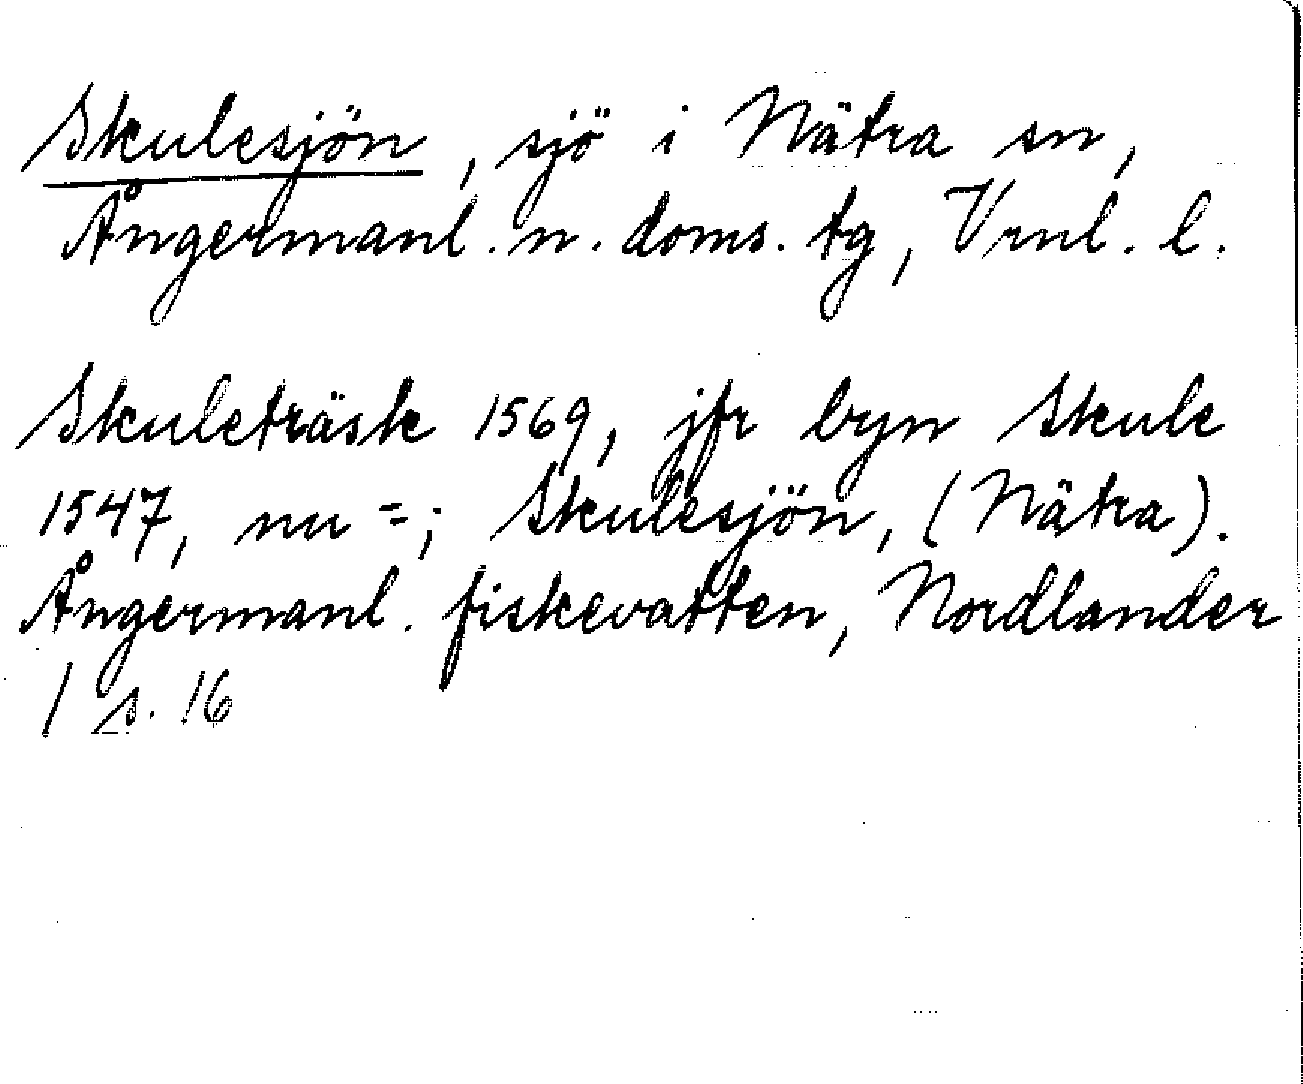 Skulesjön, sjö i Nätra sn,
Ångermanl. n. doms. tg, Vrnl. l.
Skuleträsk 1569, jfr byn Skule
1547, nu =; Skulesjön, (Nätra).
Ångermanl. fiskevatten, Nordlander
1 s. 16